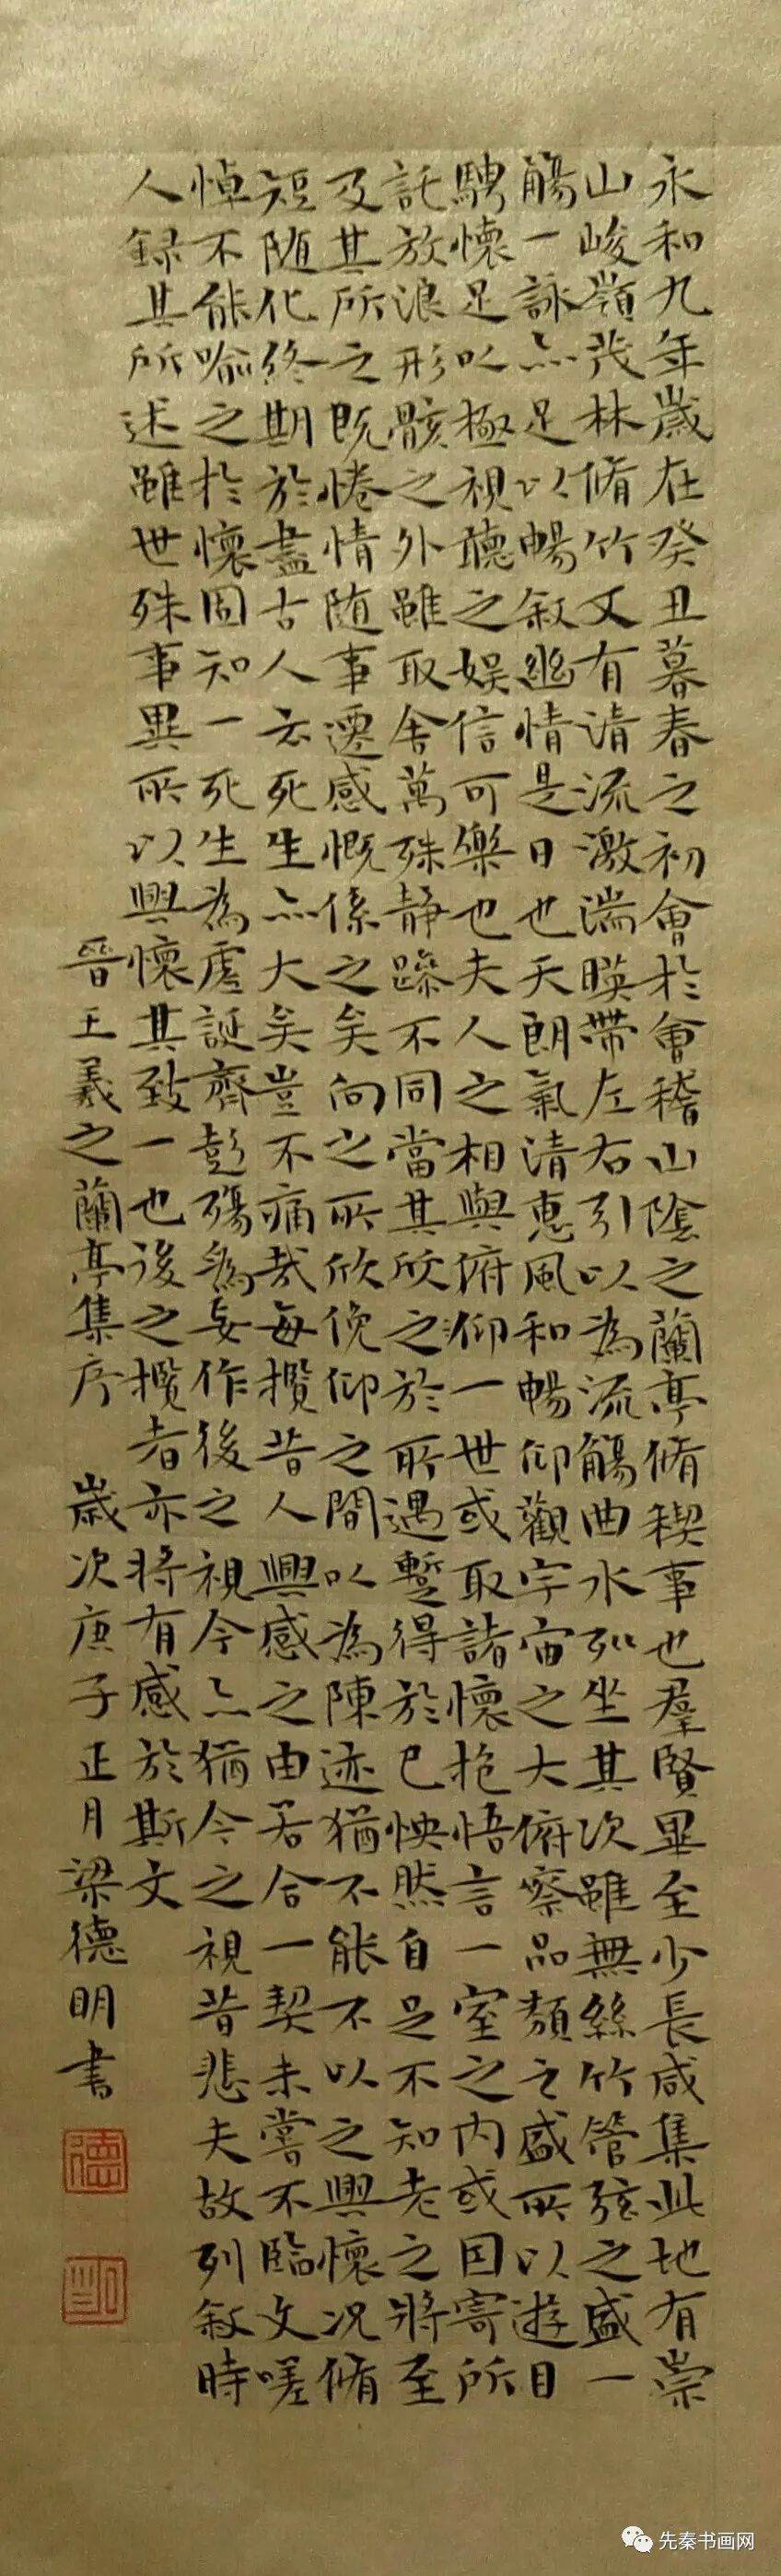 永和九年歲在癸丑暮春之初會於會稽山陰之蘭亭脩稧事也羣賢畢至少長咸集此地有崇
山峻嶺茂林脩竹又有清流激湍暎帶左右引以為流觴曲水列坐其次雖無絲竹管弦之盛一
觴一詠亦足以暢叙幽情是日也天朗氣清惠風和暢仰觀宇宙之大俯察品類之盛所以遊目
騁懷足以極視聽之娛信可樂也夫人之相與俯仰一世或取諸懷抱悟言一室之內或因寄所
託放浪形骸之外雖取舍萬殊静躁不同當其欣之於所遇蹔得於己怏然自足不知老之將至
及其所之既惓情随事遷感慨係之矣向之所欣俛仰之間以為陳迹猶不能不以之興懷况脩
短随化終期於盡古人云死生亦大矣豈不痛哉每攬昔人興感之由若合一契未嘗不臨文嗟
悼不能喻之於懷固知一死生為虛誕齊彭殤為妄作後之視今亦猶今之視昔悲夫故列叙時
人録其所述雖世殊事異所以興懷其致一也後之攬者亦将有感於斯文
晉王羲之蘭亭集序 歲次庚子正月梁德明書
德
明
先秦书画网